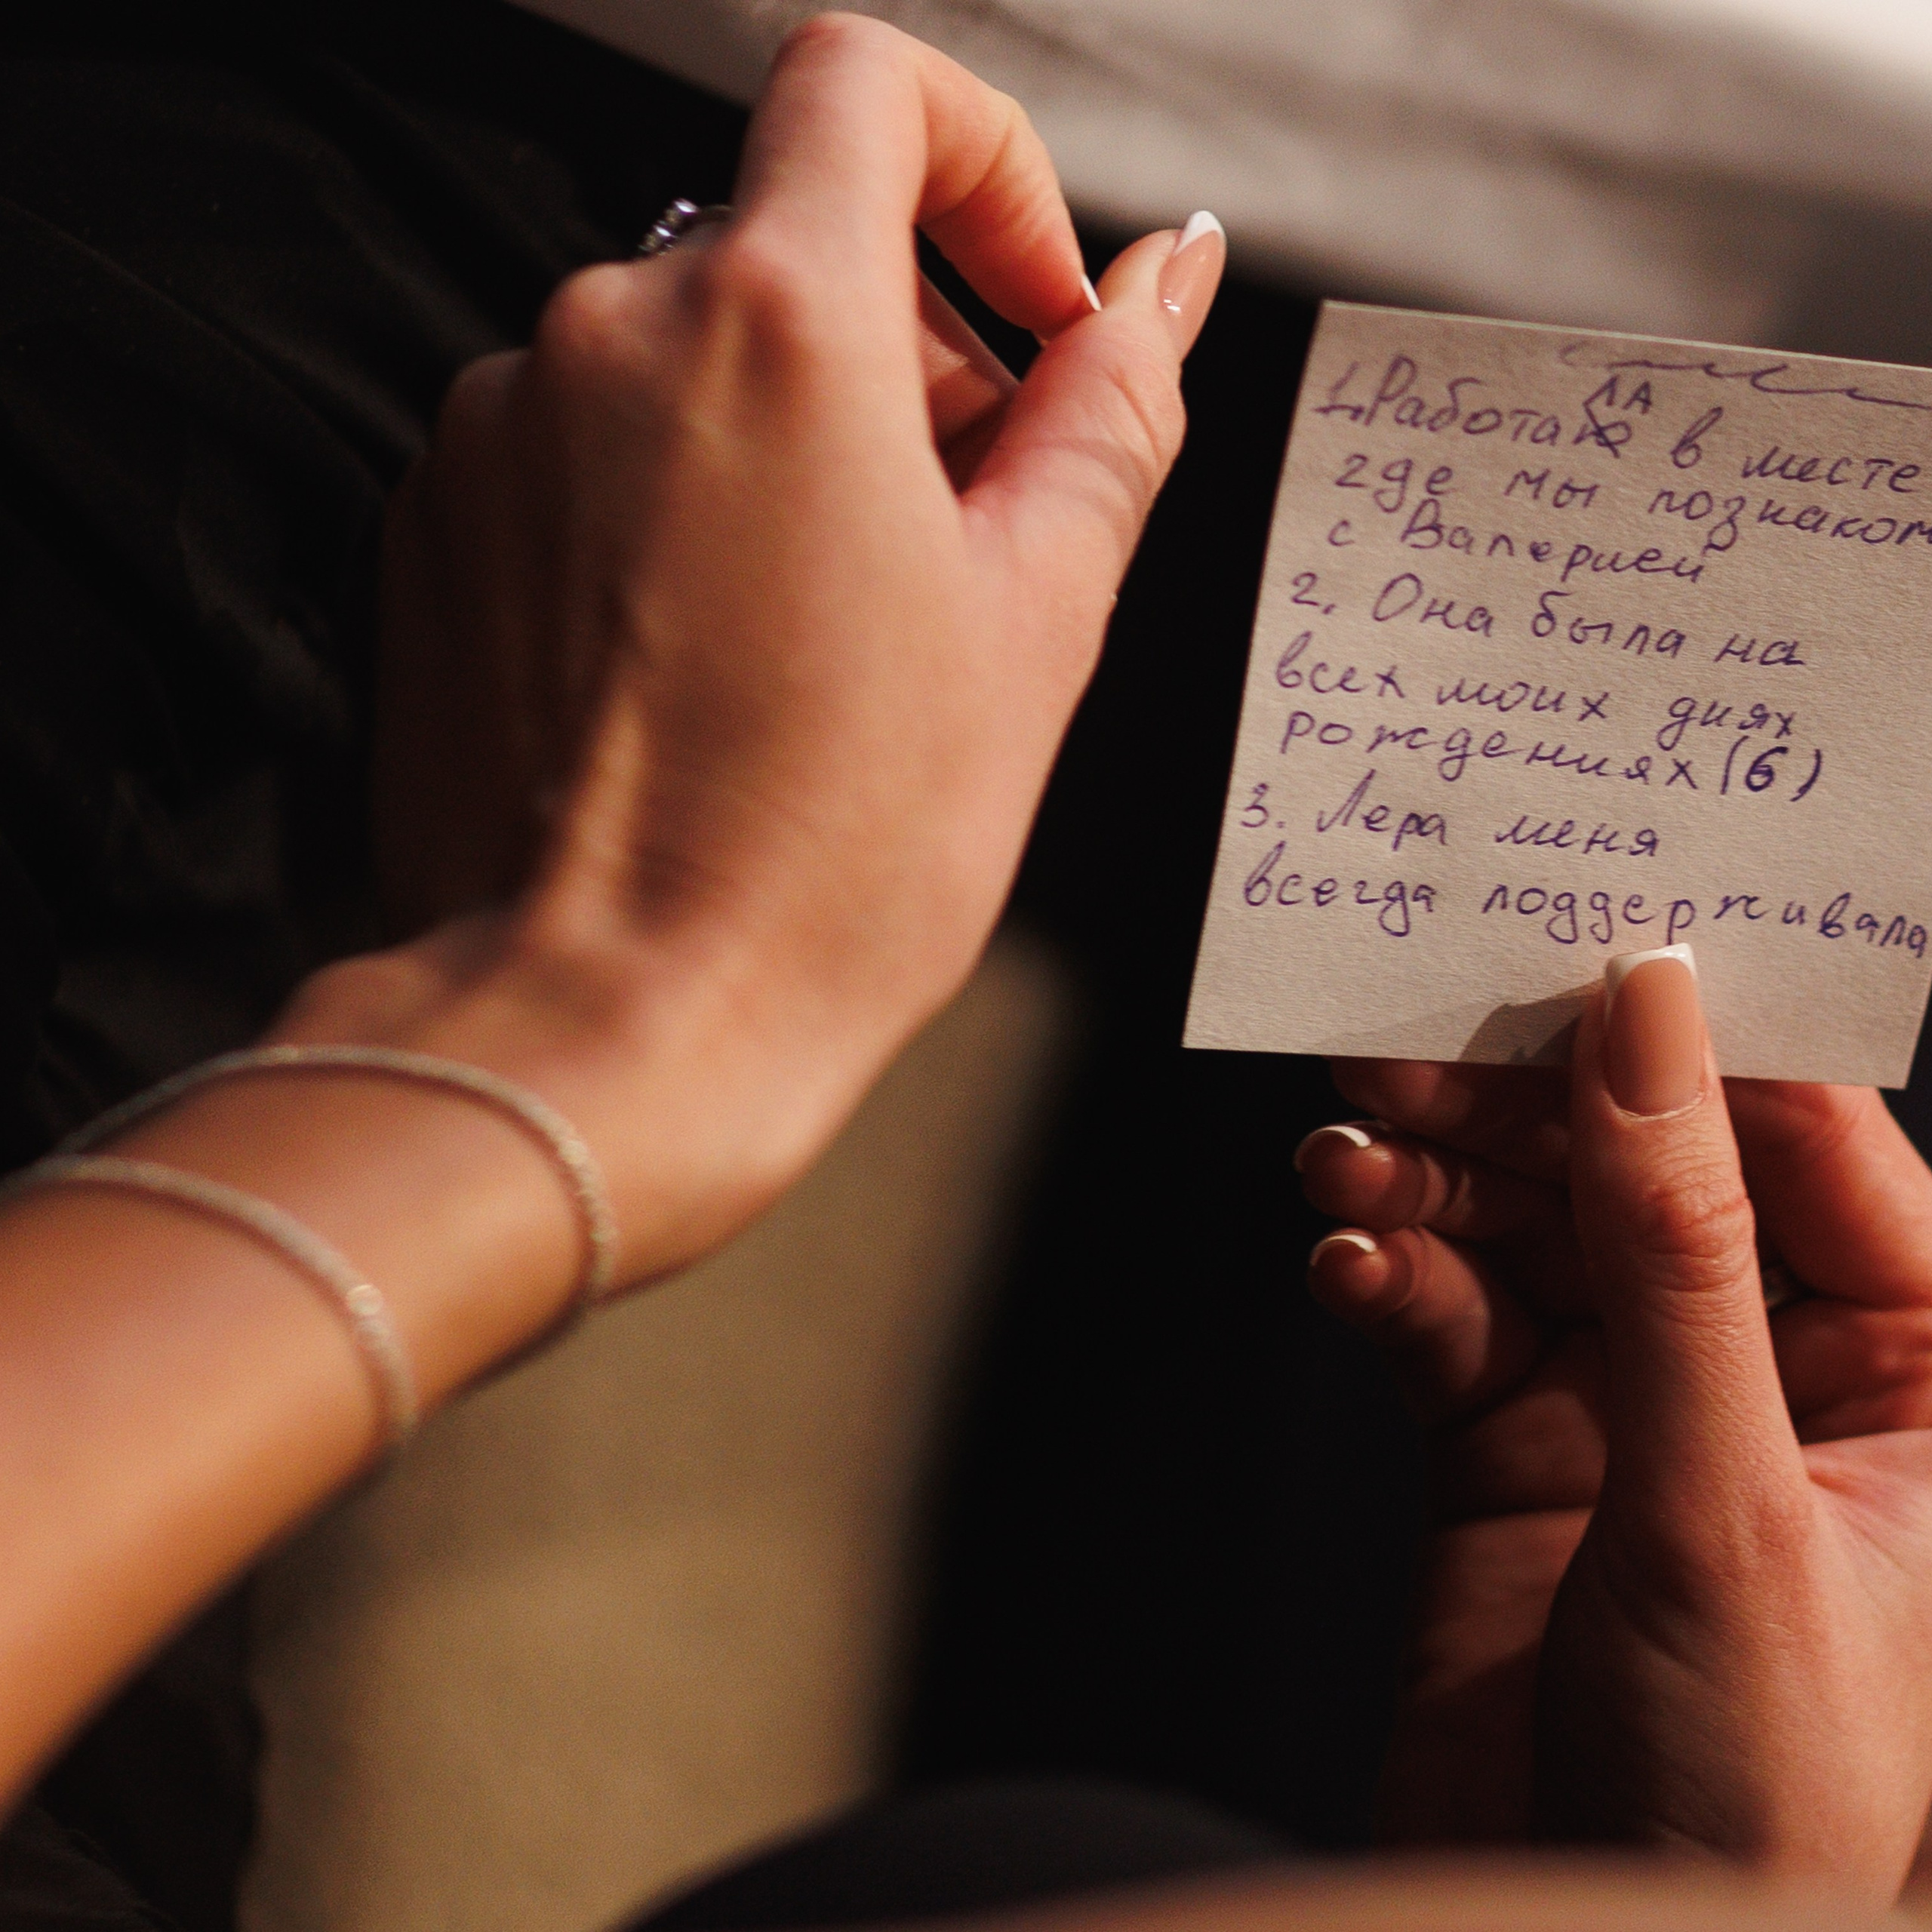 1. Работала в месте
где мы познаком
с Валерией
2. Она была на
всех моих днях
рождениях (6)
3. Лера меня
всегда поддерживала